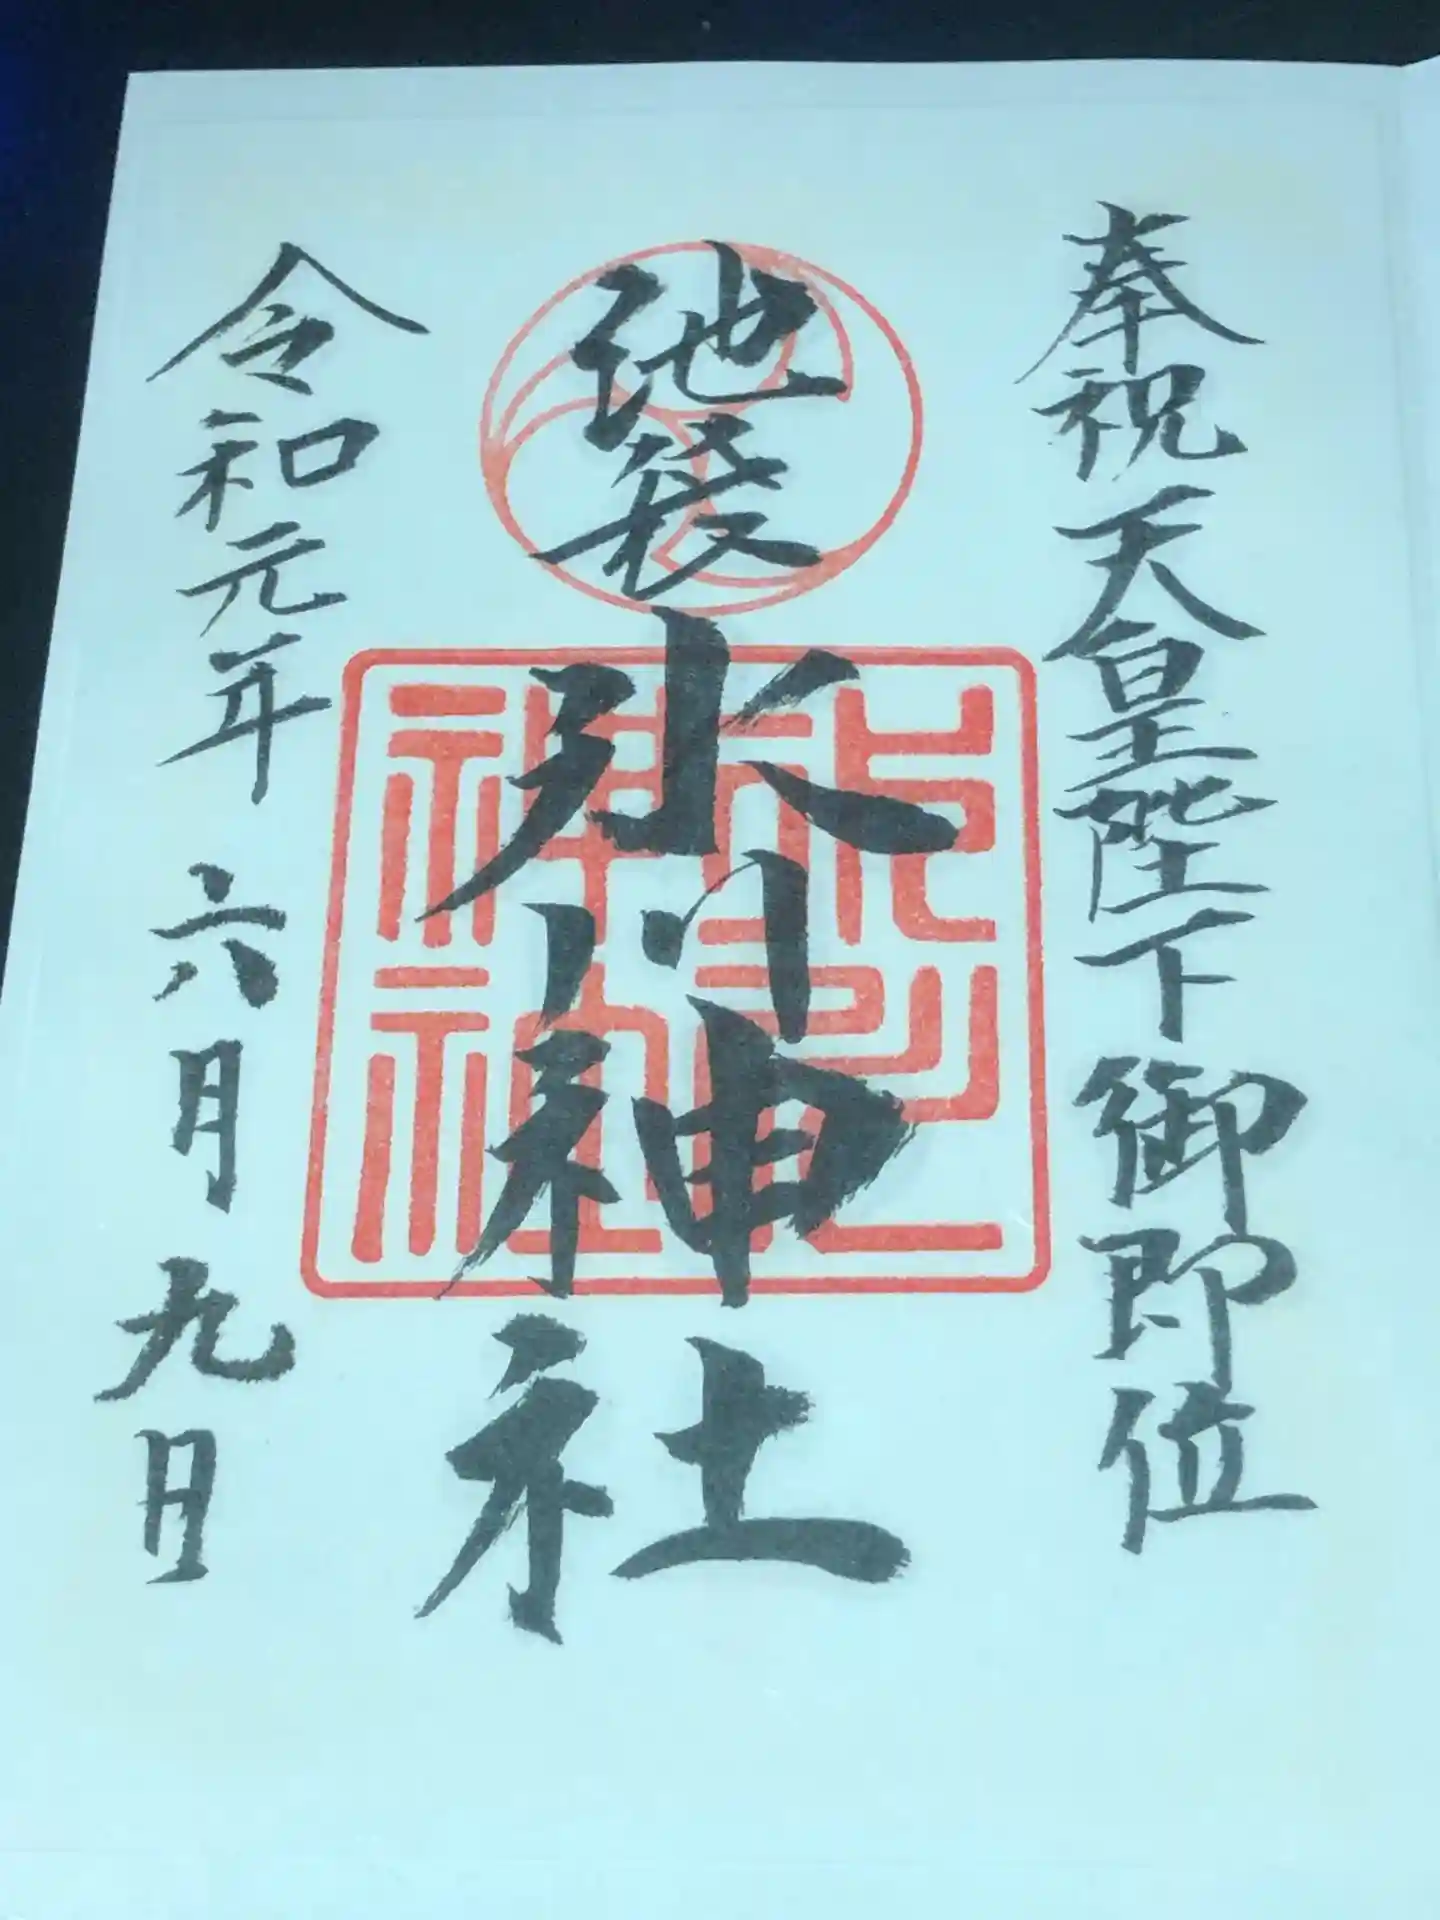 奉祝天皇陛下御即位
池袋氷川神社
令和元年六月九日